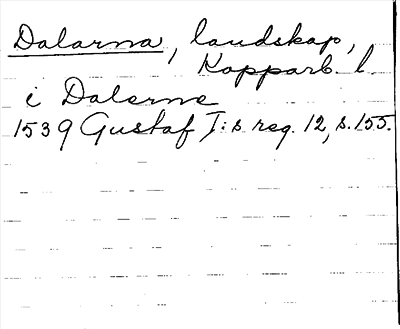 Dalarna, landskap,
Kopparb. l.
i Dalerne
1539 Gustaf I:s reg. 12, s. 155.